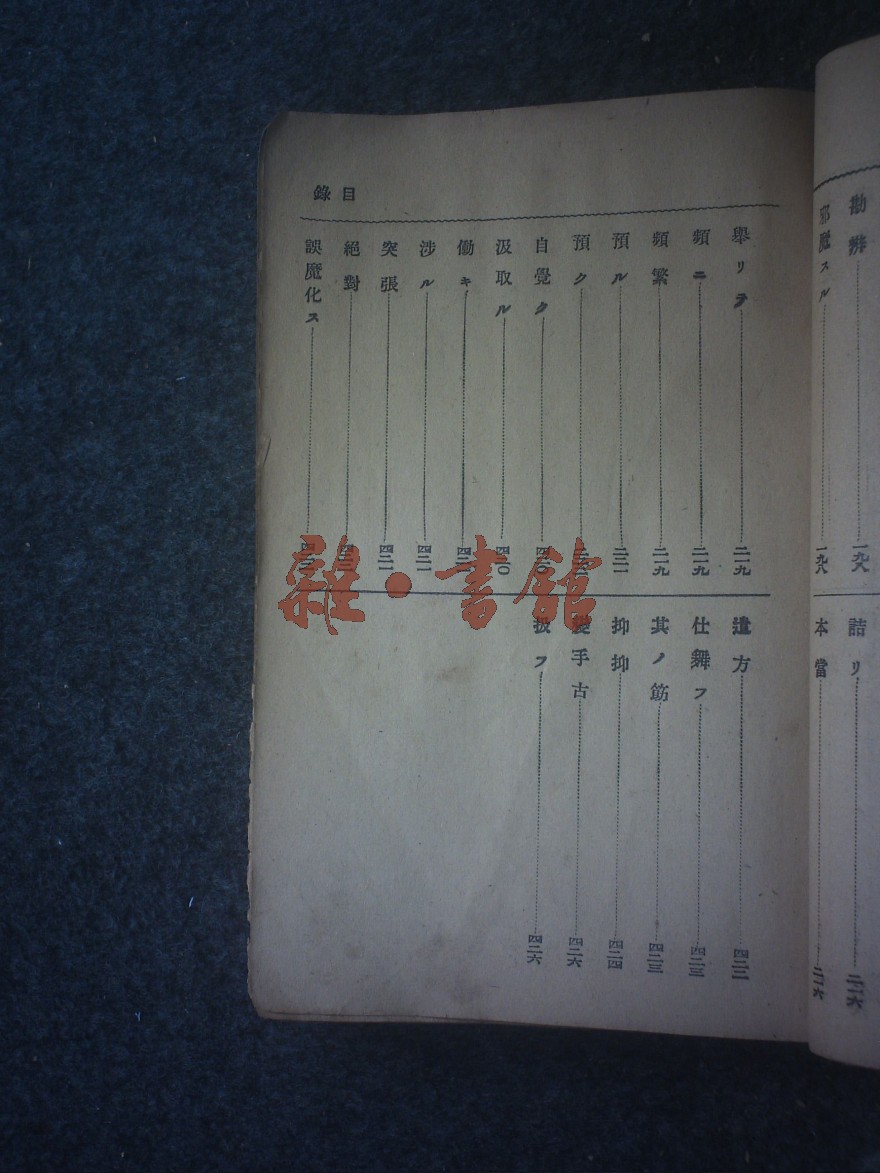 勘辨 一九八
邪魔スル 一九八
詰リ
本當
目錄
舉リテ 二一九
頻ニ 二一九
頻繁 二一九
預ル 二二一
預ク
自覺ク
汲取ル
働キ
涉ル 四二一
突張 四二一
絕對
誤魔化ス
遣方 四二二
仕舞フ 四二三
其ノ筋 四二三
抑抑 四二四
手古 四二六
扱フ 四二六
雜·書館